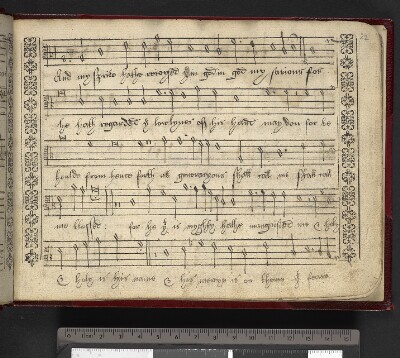 And my sprite hathe reioysed in god in god my saviour for
he hath regarded yᵉ lowlynes off his holde mayden for be
houlde from hence furth all generacyons shall call me shall call
me blyssed : for he yᵗ is myghty hathe magnified me & holy
& holy is his name & his mercy is on them yᵗ feare